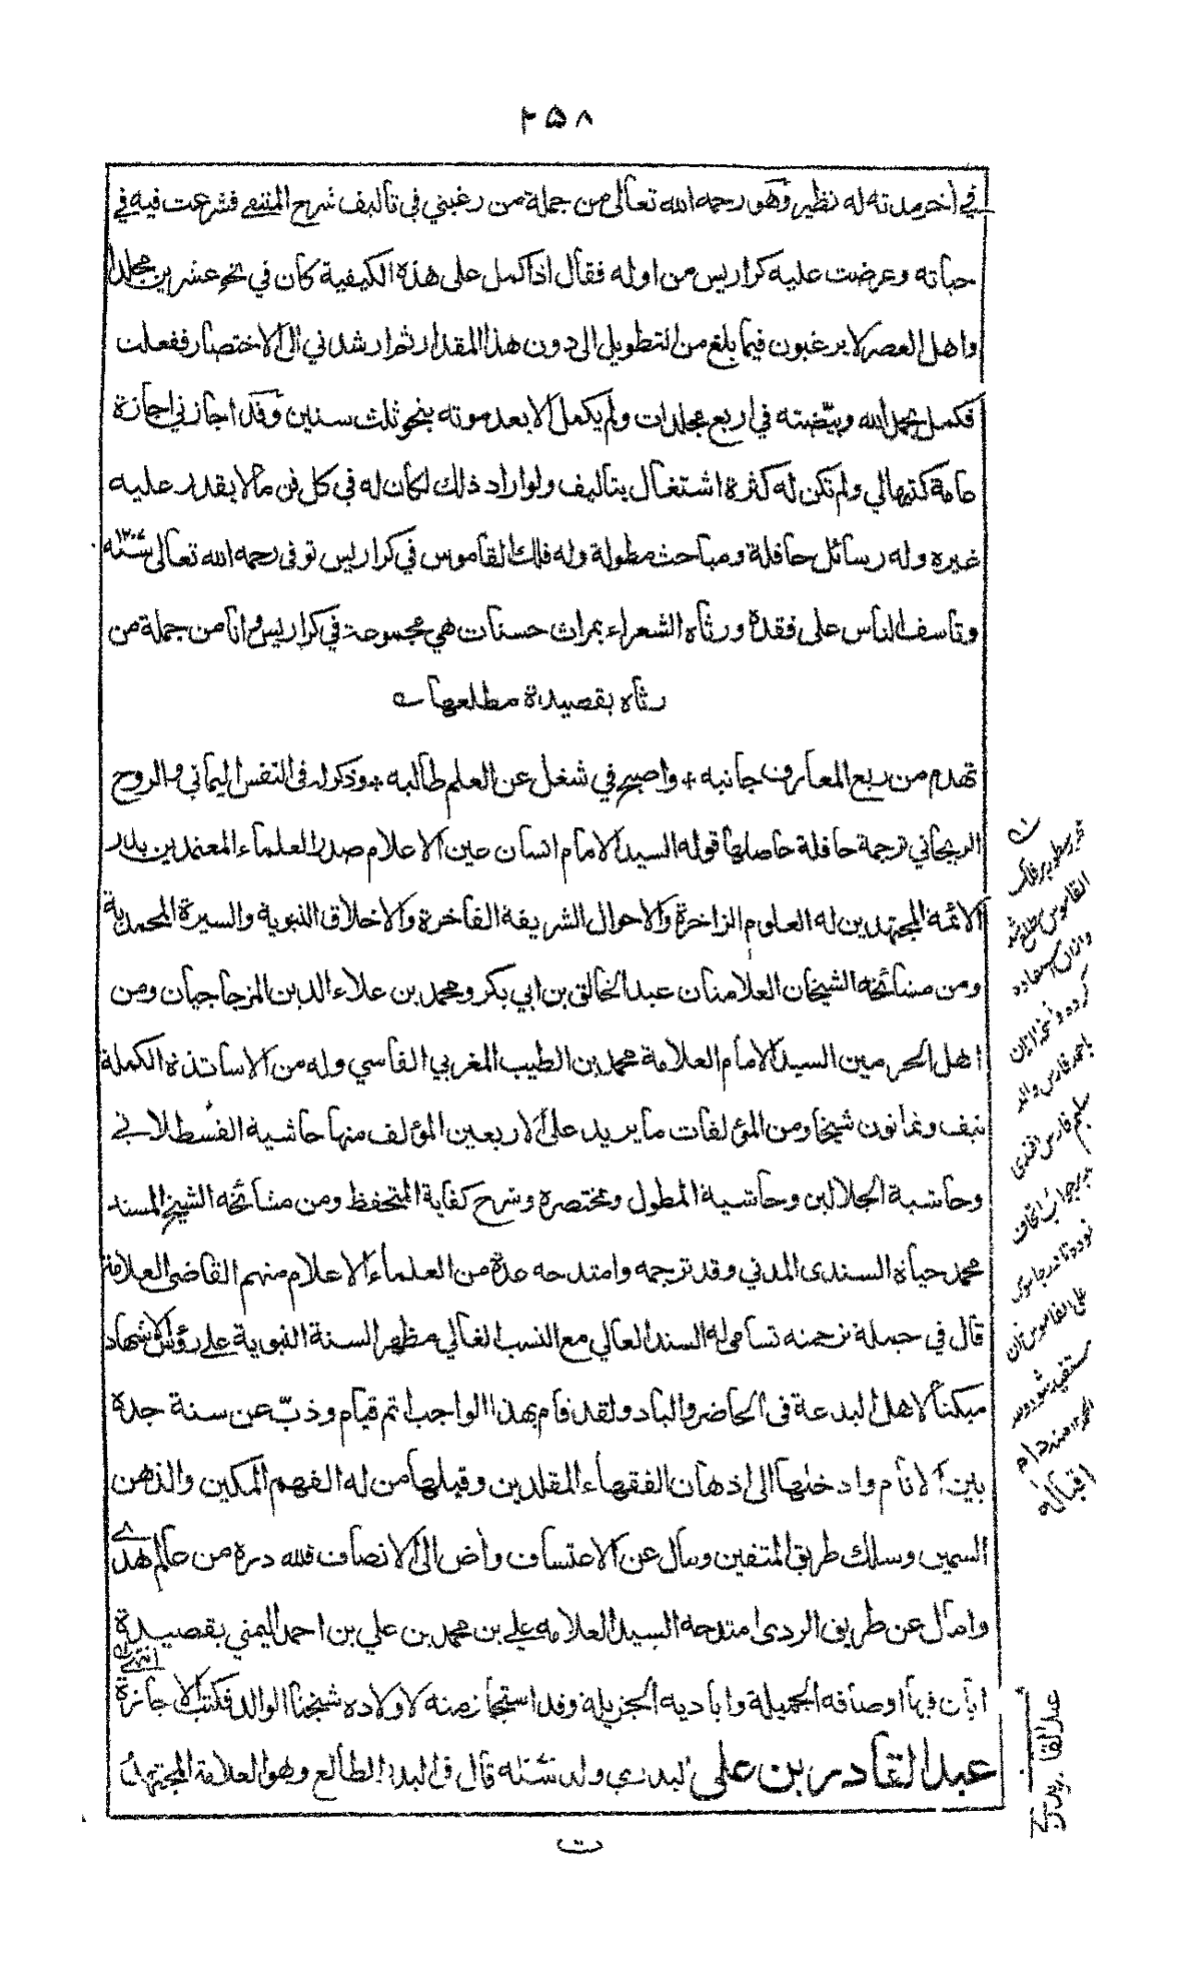 ٢٥٨
في آخر مدته له نظير وهو رحمه الله تعالى من جملة من رغبني في تاليف شرح المنتقى فشرعت فيه في
حياته وعرضت عليه كراريس من اوله فقال اذا كمل على هذه الكيفية كان في نحو عشرين مجلدا
واهل العصر لا يرغبون فيما بلغ من التطويل الى دون هذا المقدار ثم ارشدني الى الاختصار ففعلت
فكمل بحمد الله وبيّضته في اربع مجلدات ولم يكمل الا بعد موته بنحو ثلث سنين وقد اجازني اجازة
عامة كتبها لي ولم تكن له كثرة اشتغال بتاليف ولو اراد ذلك لكان له في كل فن ما لا يقدر عليه
غيره وله رسائل حافلة ومباحث مطولة وله فلك القاموس في كراريس توفى رحمه الله تعالى سنة ١٢٠٧
وتاسف الناس على فقده ورثاه الشعراء بمراث حسنات هي مجموعة في كراريس وانا من جملة من
رثاه بقصيدة مطلعها
تهدم من ربع المعارف جانبه * واصبح في شغل عن العلم طالبه * وذكر له في النفس اليماني والروح
الريحاني ترجمة حافلة حاصلها قوله السيد الامام انسان عين الاعلام صدر العلماء المعتمدين بدر
الائمة المجتهدين له العلوم الزاخرة والاحوال الشريفة الفاخرة والاخلاق النبوية والسيرة المحمدية
ومن مشائخه الشيخان العلامتان عبد الخالق بن ابي بكر ومحمد بن علاء الدين المزجاجيان ومن
اهل الحرمين السيد الامام العلامة محمد بن الطيب المغربي الفاسي وله من الاساتذة الكملة
نيف وثمانون شيخا ومن المؤلفات ما يريد على الاربعين المؤلف منها حاشية القسطلاني
وحاشية الجلالين وحاشية المطول ومختصره وشرح كفاية المتحفظ ومن مشائخه الشيخ المسند
محمد حياة السندى المدني وقد ترجمه وامتدحه عدة من العلماء الاعلام منهم القاضى العلامة
قال في جملة ترجمته تسامى له السند العالي مع النسب الغالي مظهر السنة النبوية على رؤس الاشهاد
مبكتا لاهل البدعة في الحاضر والباد ولقد قام بهذا الواجب اتم قيام وذبّ عن سنة جده
بين الانام وادخلها الى اذهان الفقهاء المقلدين وقبلها من له الفهم المكين والذهن
السمين وسلك طريق المتقين ومال عن الاعتساف واض الى الانصاف فلله دره من عالم هدى
وامال عن طريق الردى امتدحه السيد العلامه علي بن محمد بن علي بن احمد اليمني بقصيدة
ابان فيها اوصافه الجميلة واياديه الجزيلة وقد استجاز منه لاولاده شيخنا الوالد فكتب الاجازة انتهى
عبد القادر بن علي البدري ولد سنة قال في البدر الطالع وهو العلامة المجتهد
ت
فلك
القاموس